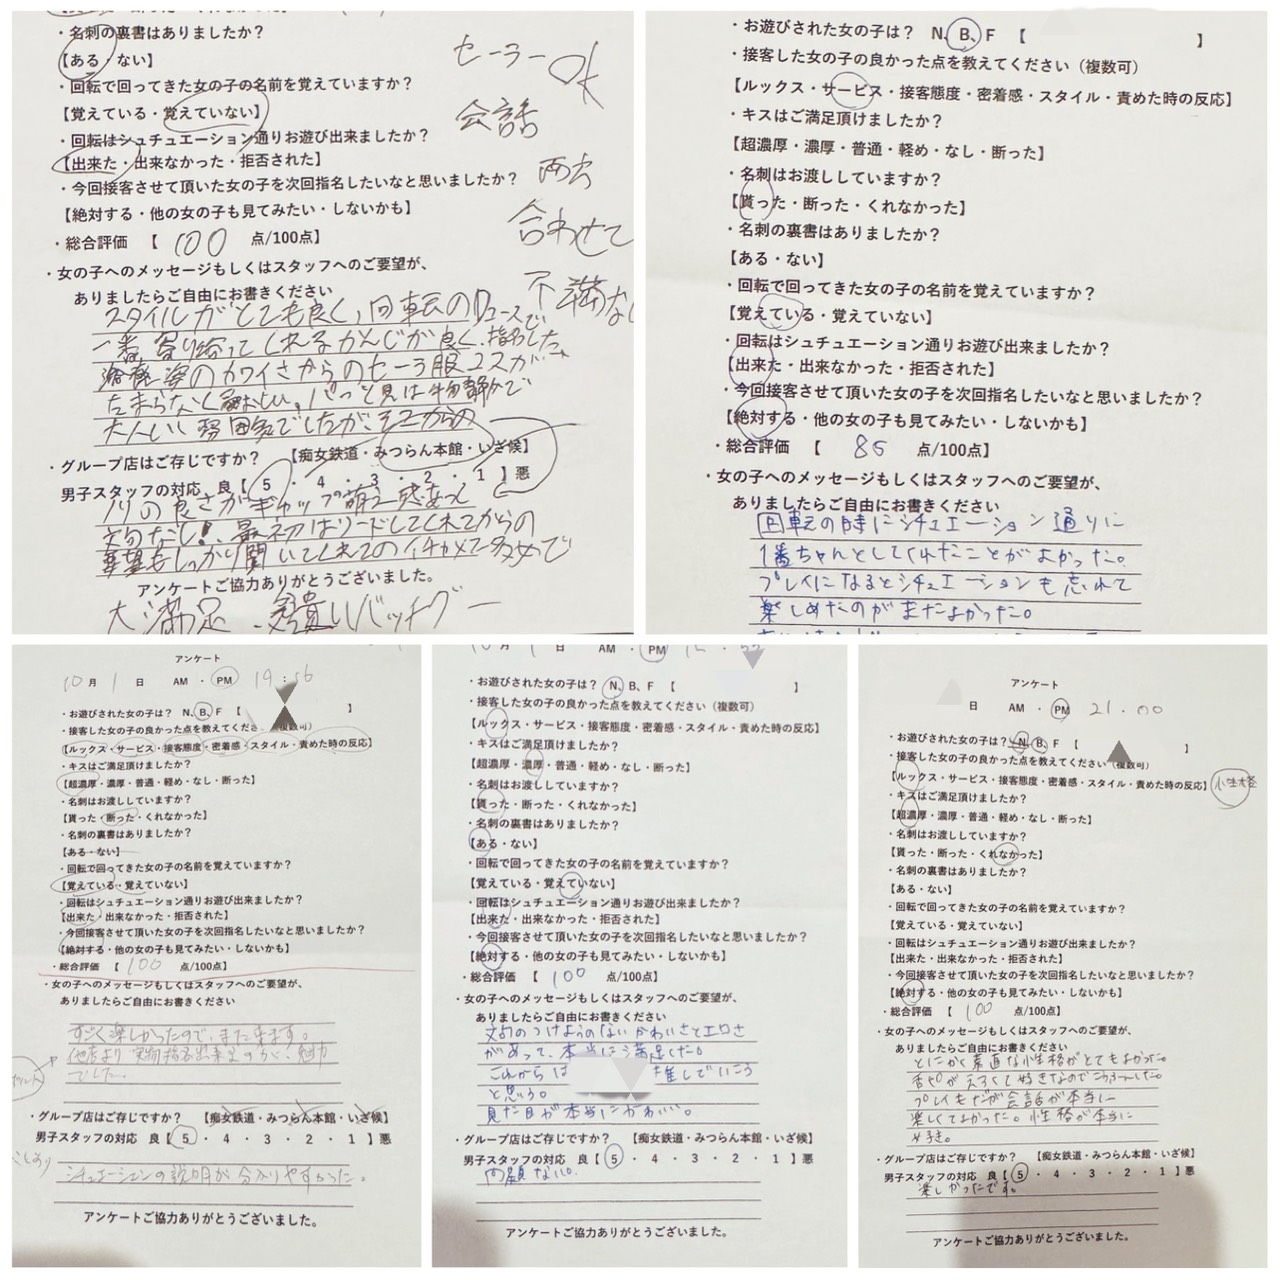 ・名刺の裏書はありましたか？
【ある・ない】
・回転で回ってきた女の子の名前を覚えていますか？
【覚えている・覚えていない】
・回転はシュチュエーション通りお遊び出来ましたか？
【出来た・出来なかった・拒否された】
・今回接客させて頂いた女の子を次回指名したいなと思いましたか？
【絶対する・他の女の子も見てみたい・しないかも】
・総合評価　【 100 点/100点】
・女の子へのメッセージもしくはスタッフへのご要望が、
ありましたらご自由にお書きください
スタイルがとても良く、回転のDユースで
一番、寄り添ってくれるかんじが良く、指名した
のカワイさからのセーラ服コスが
たまらなく パッと見は物静かで
大人しい雰囲気でしたが、そこからの
・グループ店はご存じですか？　【痴女鉄道・みつらん本館・いざ候】
男子スタッフの対応　良【 5 ・ 4 ・ 3 ・ 2 ・ 1 】悪
ノリの良さがギャップ萌え感あっ
文句なし！、最初はリードしてくれてからの
要望もしっかり聞いてくれての
アンケートご協力ありがとうございました。
大満足 バッチグー
セーラーOK
会話
両方
合わせて
不満なし
・お遊びされた女の子は？　N、B、F　【　】
・接客した女の子の良かった点を教えてください（複数可）
【ルックス・サービス・接客態度・密着感・スタイル・責めた時の反応】
・キスはご満足頂けましたか？
【超濃厚・濃厚・普通・軽め・なし・断った】
・名刺はお渡ししていますか？
【貰った・断った・くれなかった】
・名刺の裏書はありましたか？
【ある・ない】
・回転で回ってきた女の子の名前を覚えていますか？
【覚えている・覚えていない】
・回転はシュチュエーション通りお遊び出来ましたか？
【出来た・出来なかった・拒否された】
・今回接客させて頂いた女の子を次回指名したいなと思いましたか？
【絶対する・他の女の子も見てみたい・しないかも】
・総合評価　【 85 点/100点】
・女の子へのメッセージもしくはスタッフへのご要望が、
ありましたらご自由にお書きください
回転の時にシチュエーション通りに
1番ちゃんとしてくれたことがよかった。
プレイになるとシチュエーションも忘れて
楽しめたのがまたよかった。
アンケート
10月 1 日　AM ・ PM　19:56
・お遊びされた女の子は？　N、B、F　【　】
・接客した女の子の良かった点を教えてくださ 複数可）
【ルックス・サービス・接客態度・密着感・スタイル・責めた時の反応】
・キスはご満足頂けましたか？
【超濃厚・濃厚・普通・軽め・なし・断った】
・名刺はお渡ししていますか？
【貰った・断った・くれなかった】
・名刺の裏書はありましたか？
【ある・ない】
・回転で回ってきた女の子の名前を覚えていますか？
【覚えている・覚えていない】
・回転はシュチュエーション通りお遊び出来ましたか？
【出来た・出来なかった・拒否された】
・今回接客させて頂いた女の子を次回指名したいなと思いましたか？
【絶対する・他の女の子も見てみたい・しないかも】
・総合評価　【 100 点/100点】
・女の子へのメッセージもしくはスタッフへのご要望が、
ありましたらご自由にお書きください
すごく楽しかったので、また来ます。
他店より実物指名出来るのがく、魅力
でした。
・グループ店はご存じですか？　【痴女鉄道・みつらん本館・いざ候】
男子スタッフの対応　良【 5 ・ 4 ・ 3 ・ 2 ・ 1 】悪
シチュエーションの説明が分かりやすかった。
アンケートご協力ありがとうございました。
10月 1 日　AM ・ PM
・お遊びされた女の子は？　N、B、F　【　】
・接客した女の子の良かった点を教えてください（複数可）
【ルックス・サービス・接客態度・密着感・スタイル・責めた時の反応】
・キスはご満足頂けましたか？
【超濃厚・濃厚・普通・軽め・なし・断った】
・名刺はお渡ししていますか？
【貰った・断った・くれなかった】
・名刺の裏書はありましたか？
【ある・ない】
・回転で回ってきた女の子の名前を覚えていますか？
【覚えている・覚えていない】
・回転はシュチュエーション通りお遊び出来ましたか？
【出来た・出来なかった・拒否された】
・今回接客させて頂いた女の子を次回指名したいなと思いましたか？
【絶対する・他の女の子も見てみたい・しないかも】
・総合評価　【 100 点/100点】
・女の子へのメッセージもしくはスタッフへのご要望が、
ありましたらご自由にお書きください
文句のつけようのないかわいさとエロさ
があって、本当に満足した。
これからは 推しでいこう
と思う。
見た目が本当にかわいい。
・グループ店はご存じですか？　【痴女鉄道・みつらん本館・いざ候】
男子スタッフの対応　良【 5 ・ 4 ・ 3 ・ 2 ・ 1 】悪
問題ない。
アンケートご協力ありがとうございました。
アンケート
日　AM ・ PM　21:00
・お遊びされた女の子は？　N、B、F　【　】
・接客した女の子の良かった点を教えてください（複数可）
【ルックス・サービス・接客態度・密着感・スタイル・責めた時の反応】 性格
・キスはご満足頂けましたか？
【超濃厚・濃厚・普通・軽め・なし・断った】
・名刺はお渡ししていますか？
【貰った・断った・くれなかった】
・名刺の裏書はありましたか？
【ある・ない】
・回転で回ってきた女の子の名前を覚えていますか？
【覚えている・覚えていない】
・回転はシュチュエーション通りお遊び出来ましたか？
【出来た・出来なかった・拒否された】
・今回接客させて頂いた女の子を次回指名したいなと思いましたか？
【絶対する・他の女の子も見てみたい・しないかも】
・総合評価　【 100 点/100点】
・女の子へのメッセージもしくはスタッフへのご要望が、
ありましたらご自由にお書きください
とにかく素直な性格がとてもよかった。
プレイもだが会話が本当に
楽しくてよかった。性格が本当に
好き。
・グループ店はご存じですか？　【痴女鉄道・みつらん本館・いざ候】
男子スタッフの対応　良【 5 ・ 4 ・ 3 ・ 2 ・ 1 】悪
楽しかったです。
アンケートご協力ありがとうございました。